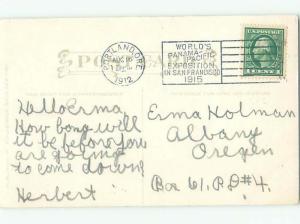 POST CARD
PORTLAND, ORE.
AUG 16
1912
WORLD'S
PANAMA- PACIFIC
EXPOSITION
IN SAN FRANCISCO
1915
1 CENT 1
Hello Erma,
How long will
it be before you
are going
to come down
Herbert
Erma Holman
Albany
Oregon
Box 61, RD#4.